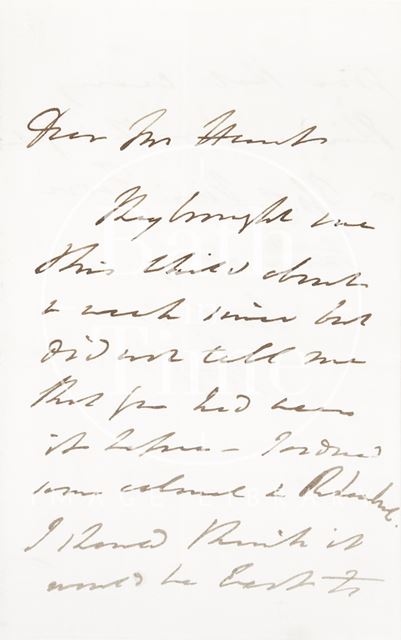 Dear Mr Hunt
They brought me
this child about
a week since but
did not tell me
that you had seen
it before - I ordered
some calomel & Rhubarb.
I should think it
would be best to
Bath
in
Time
IMAGE LIBRARY